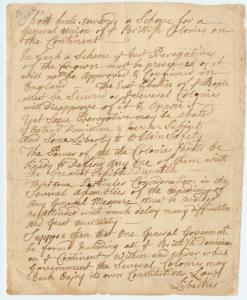 Short hints towards a Scheme for a
General Union of ye British Colonies on
the Continent
In Such a Scheme ye Just Prerogatives
of the Crown must be preserved or it
will not be Approved & Confirmed in
England. The Just Liberties of ye People
must be Secured or ye Several Colonies
will Disapprove of it & Oppose it
Yet Some Prerogative may be abated
to Extend Dominion & increase Subjects
And Some Liberty to Obtain Safety
The Forces of all the Colonies should be
Ready to Defend Any One of them with
the Greatest Possible Dispatch
Numerous Continued Conventions in the
Several Assemblies of the Expediency of
Any General Measure must be
attended with much delay many difficulties
and Great uncertainty
Suppose then that One General Government
be formed Including all ye British Dominions
on ye Continent Within and under which
Government the Several Colonies may
Each Enjoy its own Constitution Laws
Liberties